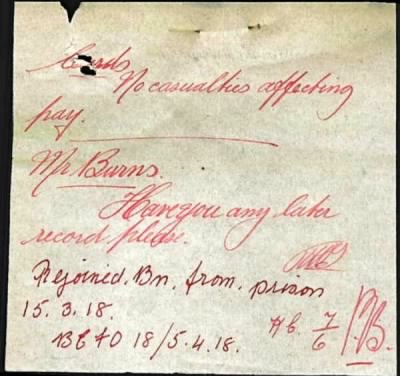 Cards
No casualties affecting
pay.
Mr Burns.
Have you any later
record please.
Rejoined. Bn. from. prison
15.3.18.
BEFO 18/5.4.18.
7/6